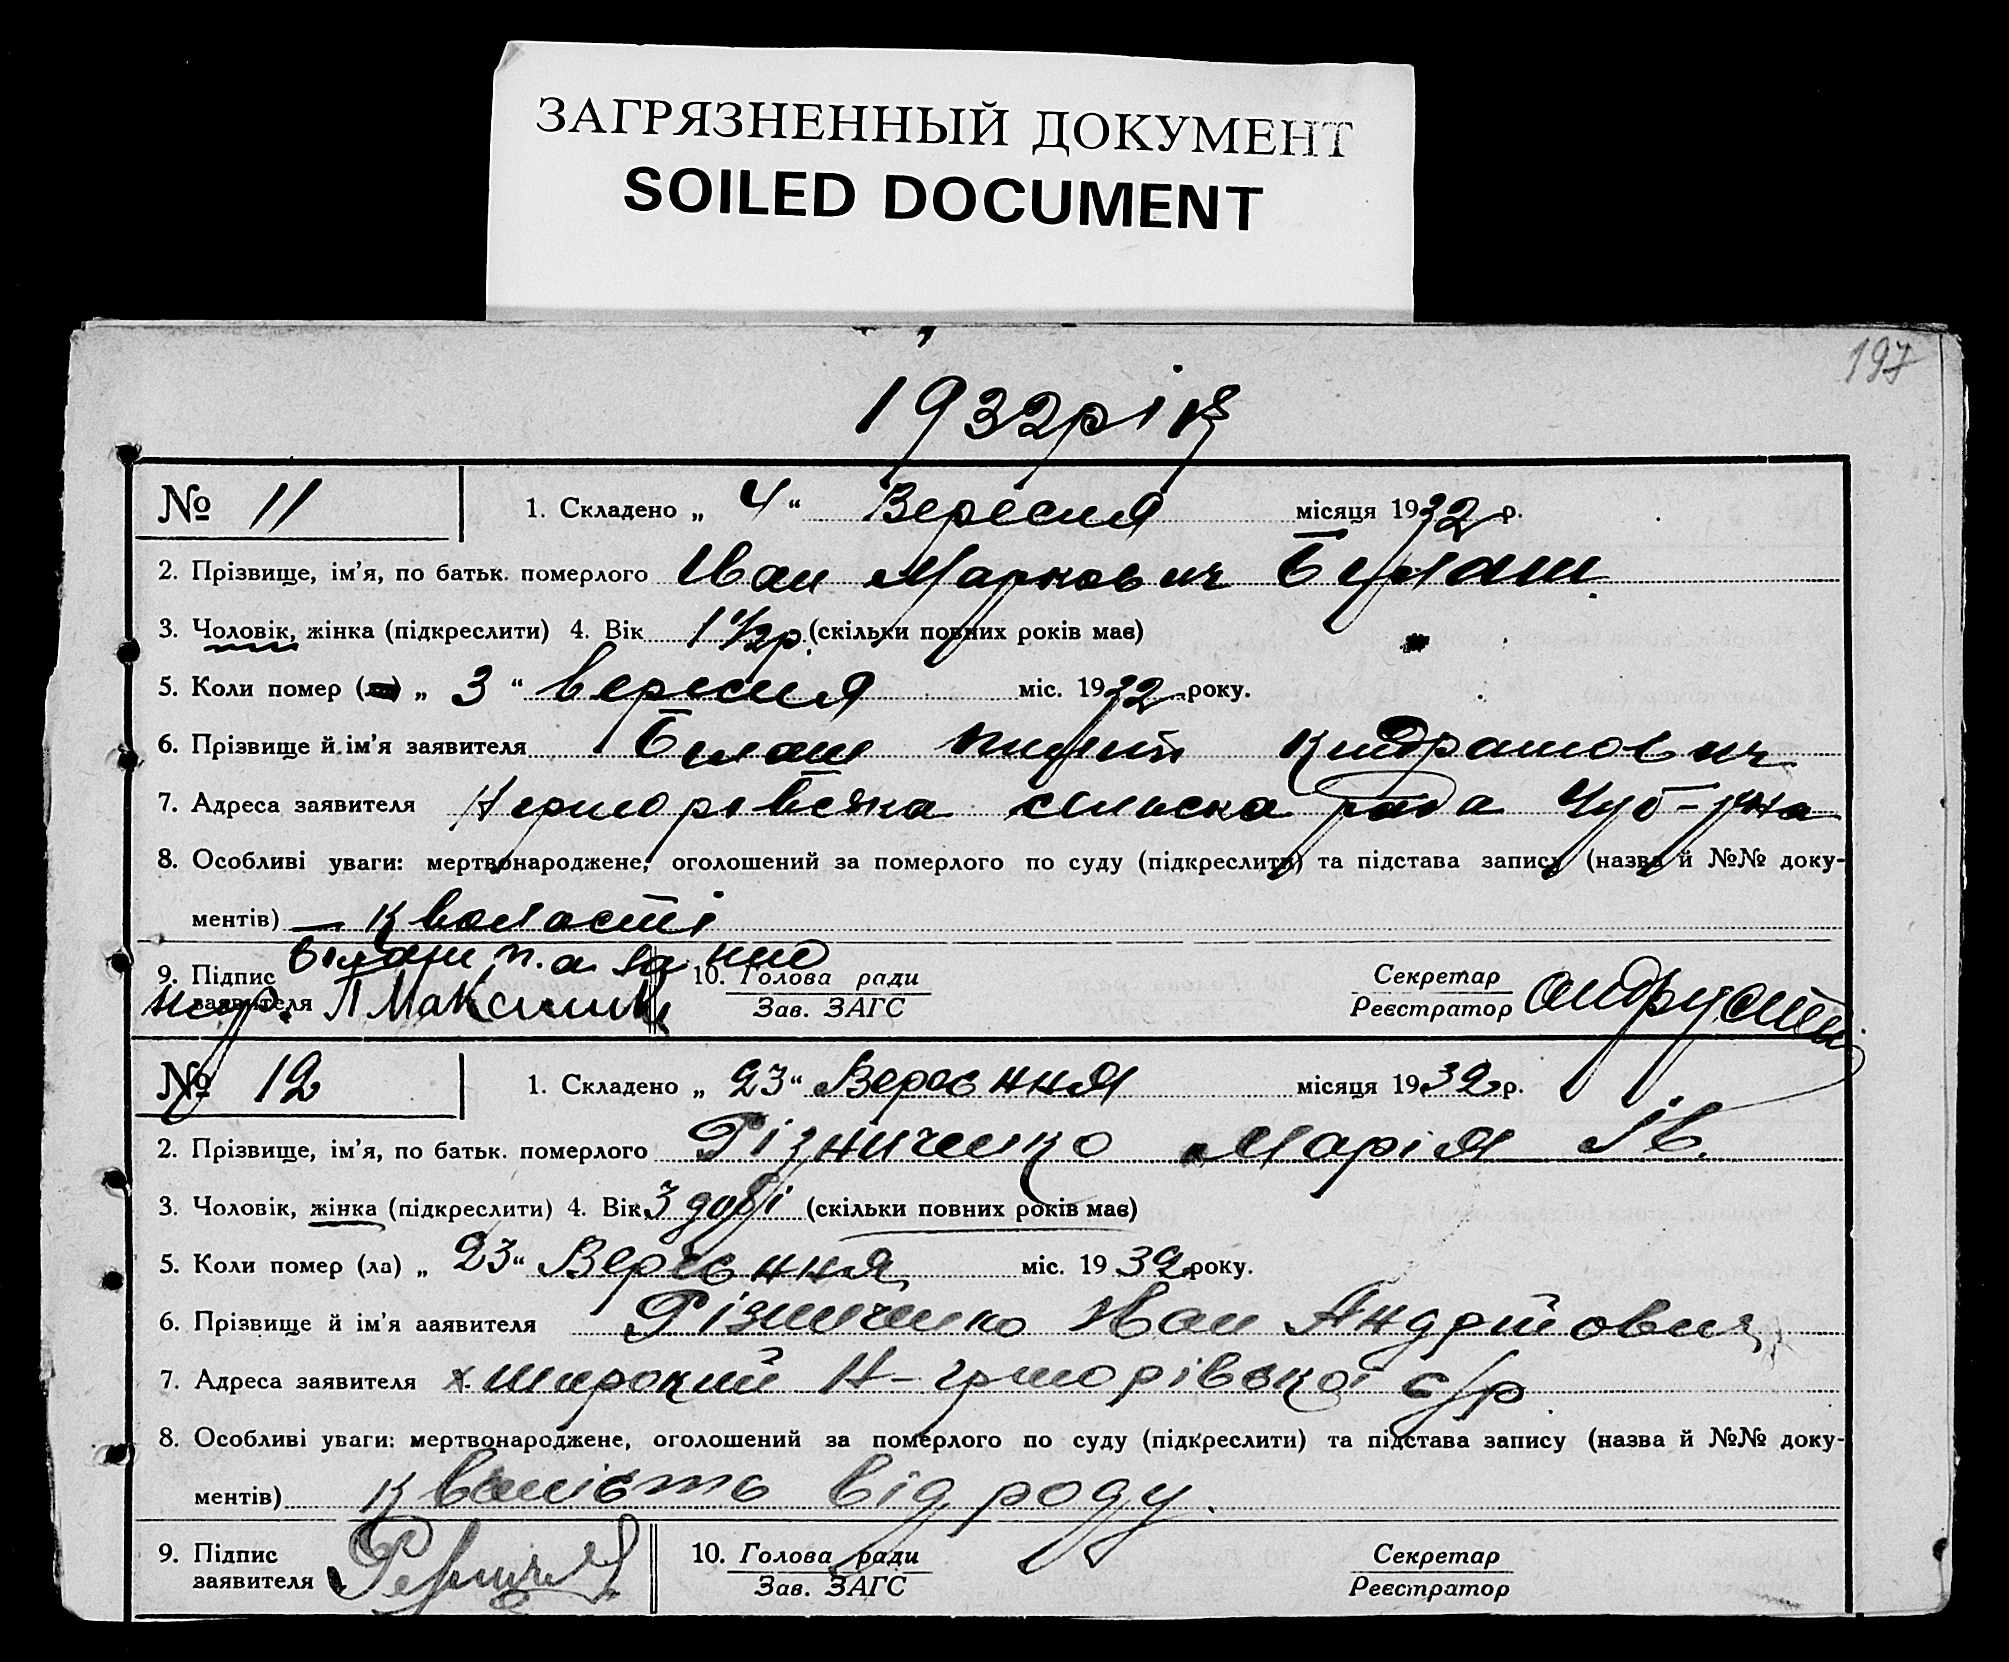 ЗАГРЯЗНЕННЫЙ ДОКУМЕНТ
SOILED DOCUMENT
197
1932 рік
№ 11 1. Складено „ 4 “ Вересня місяця 1932 р.
2. Прізвище, ім'я, по батьк. померлого Иван Маркович Білаш
3. Чоловік, жінка (підкреслити) 4. Вік 1 1/2 р. (скільки повних років має)
5. Коли помер „ 3 “ вересня міс. 1932 року.
6. Прізвище й ім'я заявителя Білаш
7. Адреса заявителя сільска рада
8. Особливі уваги: мертвонароджене, оголошений за померлого по суду (підкреслити) та підстава запису (назва й №№ доку-
ментів) – кволості
9. Підпис заявителя за
10. Голова ради
Зав. ЗАГС
Секретар
Реєстратор
№ 12 1. Складено „ 23 “ Вересьння місяця 1932 р.
2. Прізвище, ім'я, по батьк. померлого Різниченко Марія Ів.
3. Чоловік, жінка (підкреслити) 4. Вік 3 добі (скільки повних років має)
5. Коли помер (ла) „ 23 “ Вересьння міс. 1932 року.
6. Прізвище й ім'я заявителя Різниченко Иван Андрійович
7. Адреса заявителя х. Широкий Н-григорівської с/р.
8. Особливі уваги: мертвонароджене, оголошений за померлого по суду (підкреслити) та підстава запису (назва й №№ доку-
ментів) кволість від роду.
9. Підпис
заявителя
10. Голова ради
Зав. ЗАГС
Секретар
Реєстратор